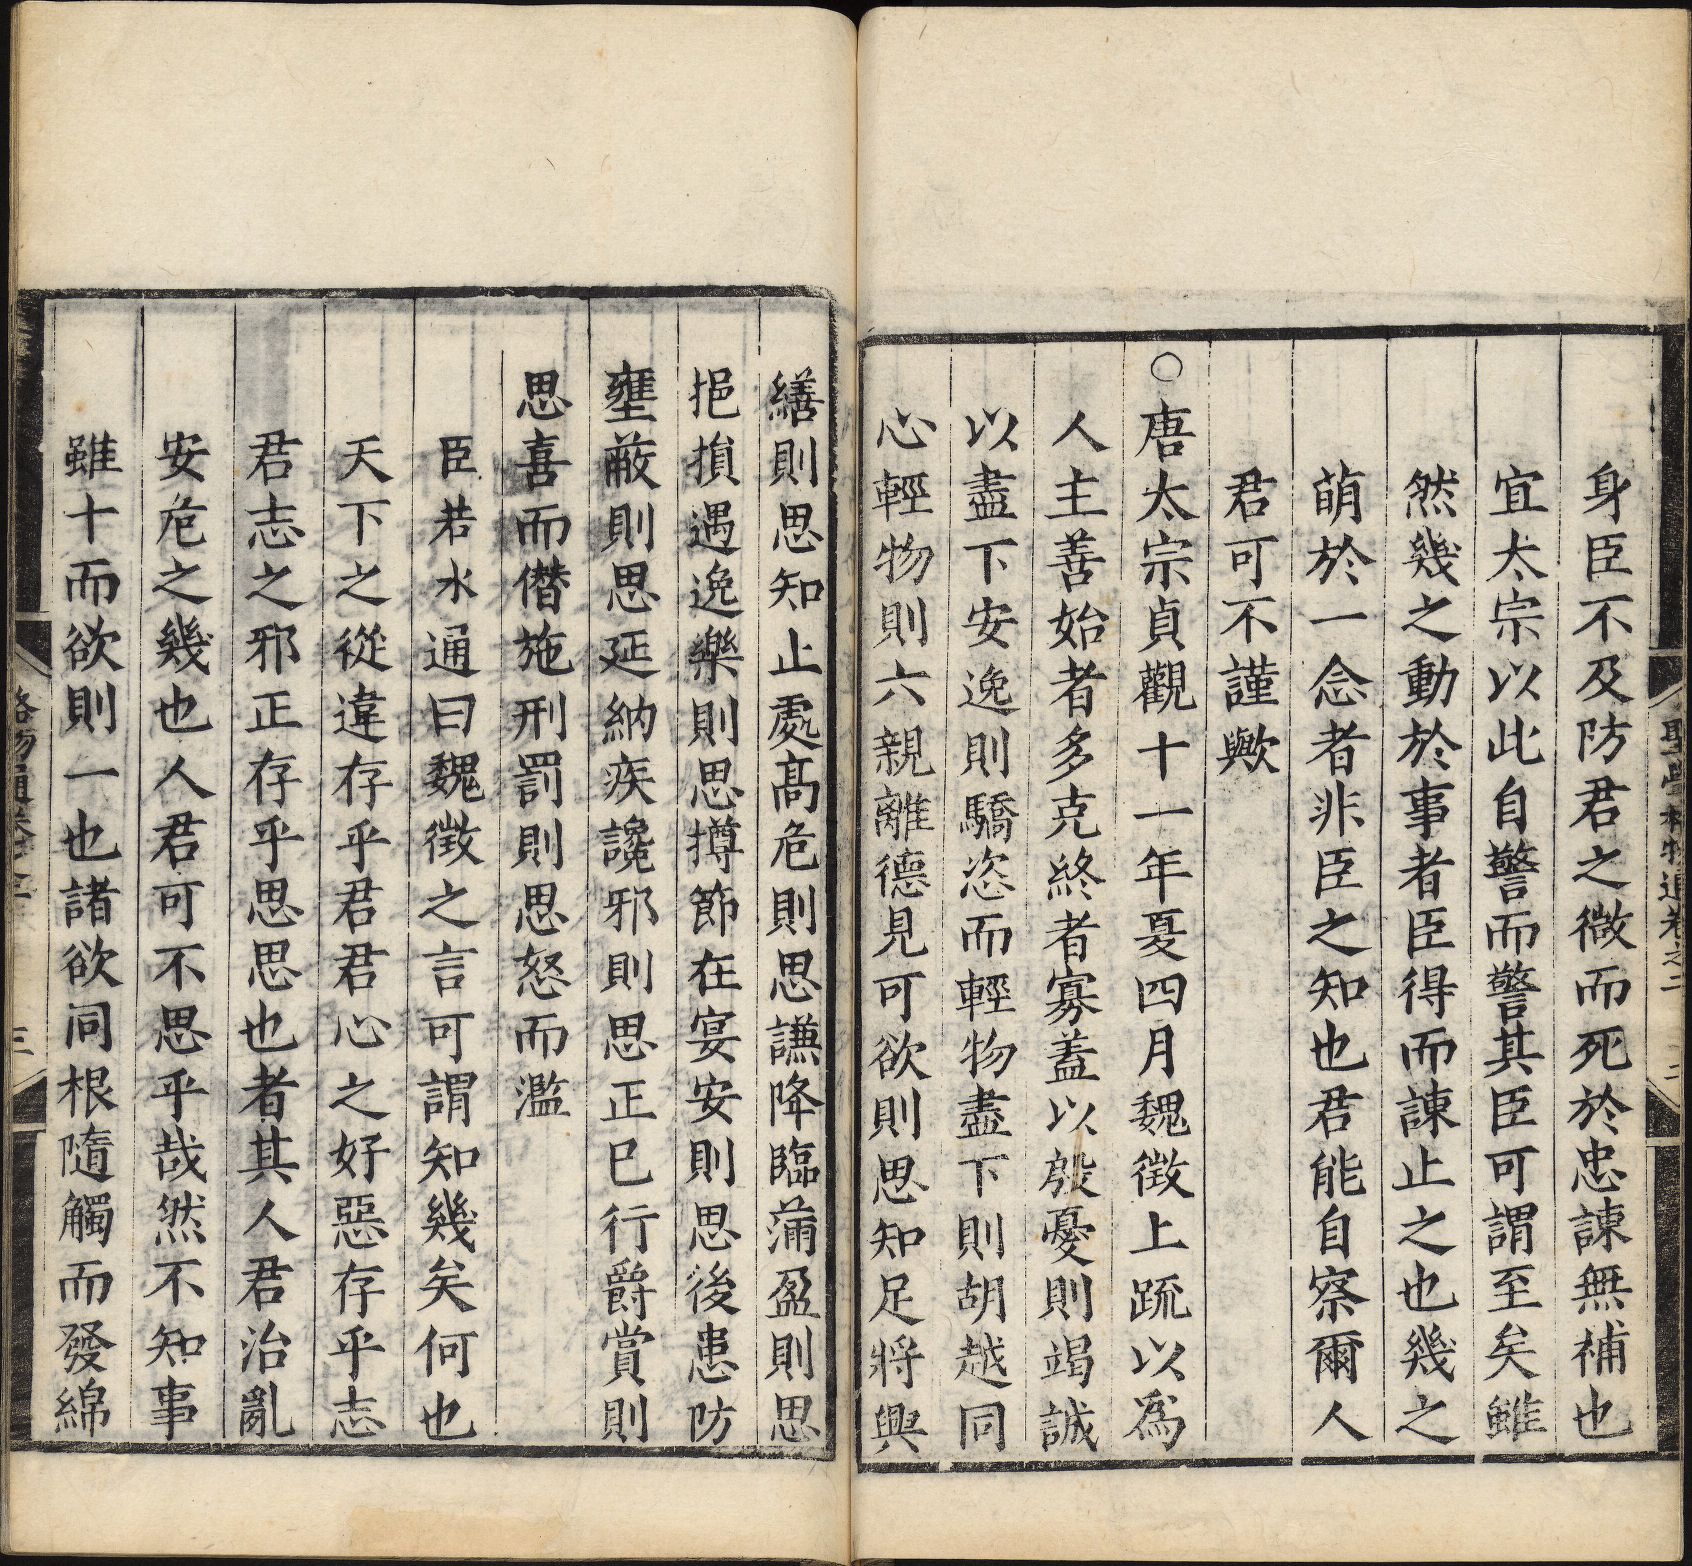 聖學格物通卷之二
二
身臣不及防君之微而死於忠諫無補也
宜太宗以此自警而警其臣可謂至矣雖
然幾之動於事者臣得而諫止之也幾之
萌於一念者非臣之知也君能自察爾人
君可不謹歟
○唐太宗貞觀十一年夏四月魏徵上疏以爲
人主善始者多克終者寡蓋以殷憂則竭誠
以盡下安逸則驕恣而輕物盡下則胡越同
心輕物則六親離德見可欲則思知足將興
繕則思知止處高危則思謙降臨蒲盈則思
挹損遇逸樂則思撙節在宴安則思後患防
壅蔽則思延納疾讒邪則思正巳行爵賞則
思喜而僭施刑罰則思怒而濫
臣若水通曰魏徵之言可謂知幾矣何也
天下之從違存乎君君心之好惡存乎志
君志之邪正存乎思思也者其人君治亂
安危之幾也人君可不思乎哉然不知事
雖十而欲則一也諸欲同根隨觸而發綿
格物通卷之二
三